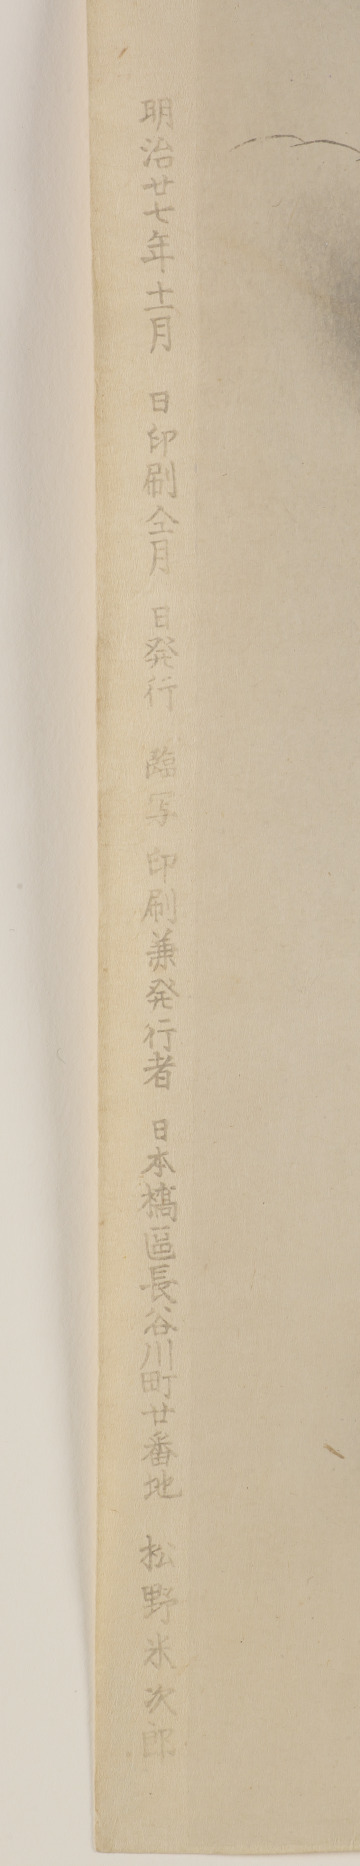 明治廿七年十一月　日印刷仝月　日発行　臨写印刷兼発行者　日本橋區長谷川町廿番地　松野米次郎